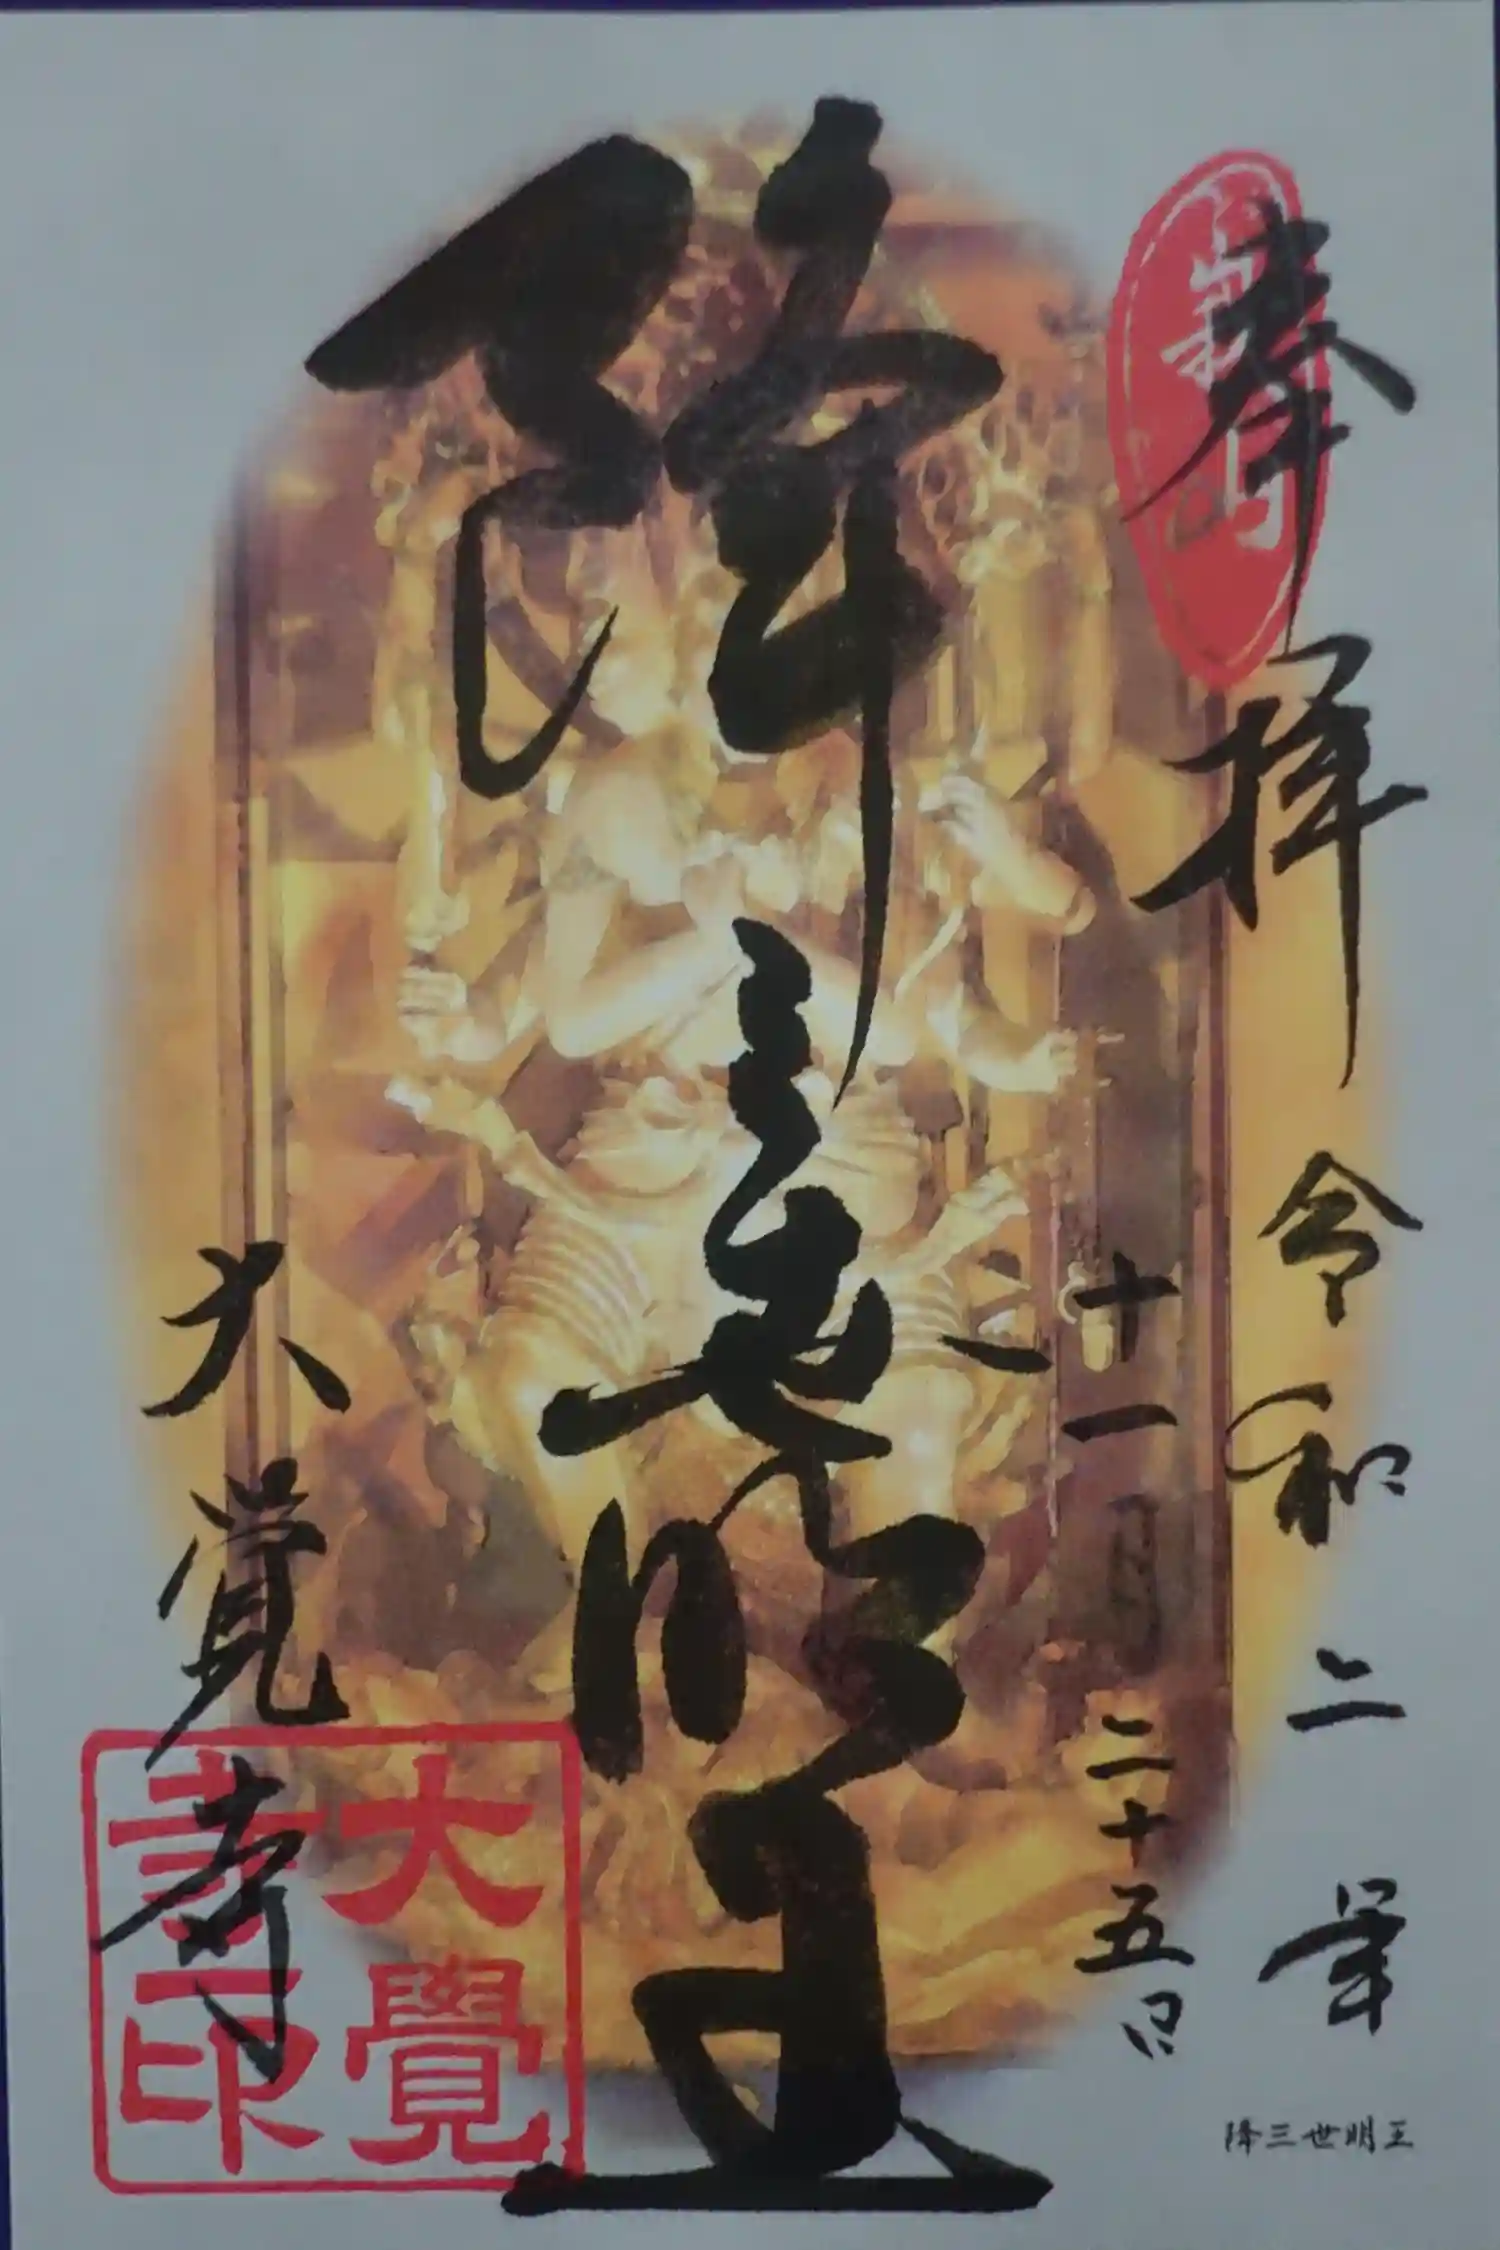 奉拝
令和二年
十一月二十五日
降三世明王
大覚寺
大覺
寺印
降三世明王